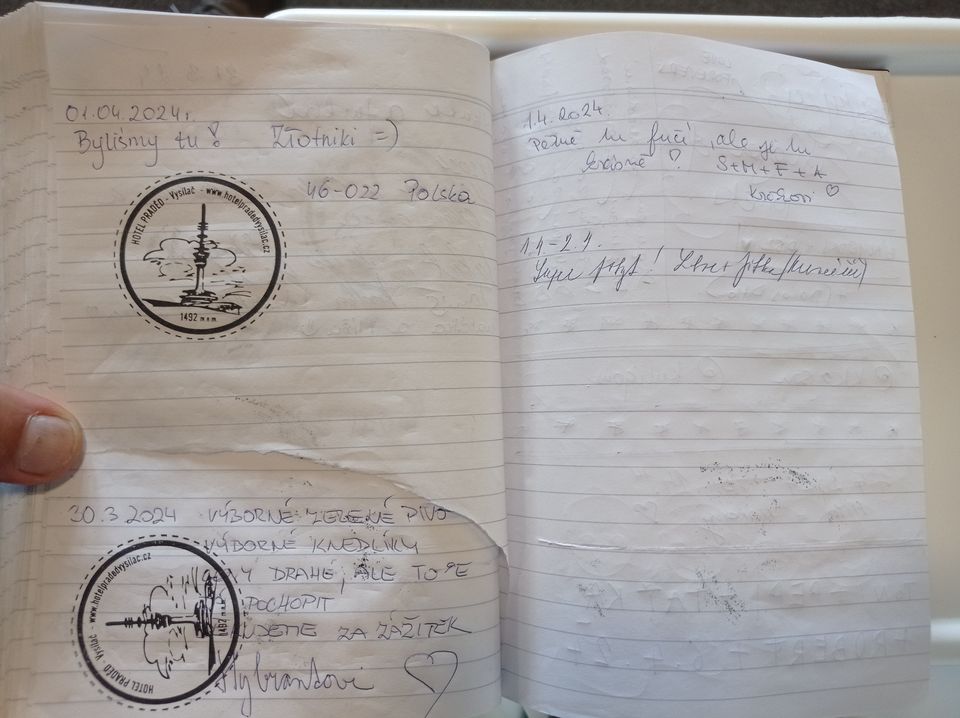 01.04.2024r.
Byliśmy tu! Złotniki =)
46-022 Polska
HOTEL PRADĚD - Vysílač - www.hotelpradedvysilac.cz
1492 m n.m.
30.3.2024 VÝBORNÉ ZELENÉ PIVO
VÝBORNÉ KNEDLÍKY
DRAHÉ, ALE TO SE
POCHOPIT
ZA ZÁŽITEK
HOTEL PRADĚD - Vysílač - www.hotelpradedvysilac.cz
1492 m n.m.
1.4.2024
Pěkně tu fučí, ale je tu
krásně
S+M+F+A
1.4-2.4.
Super pobyt!